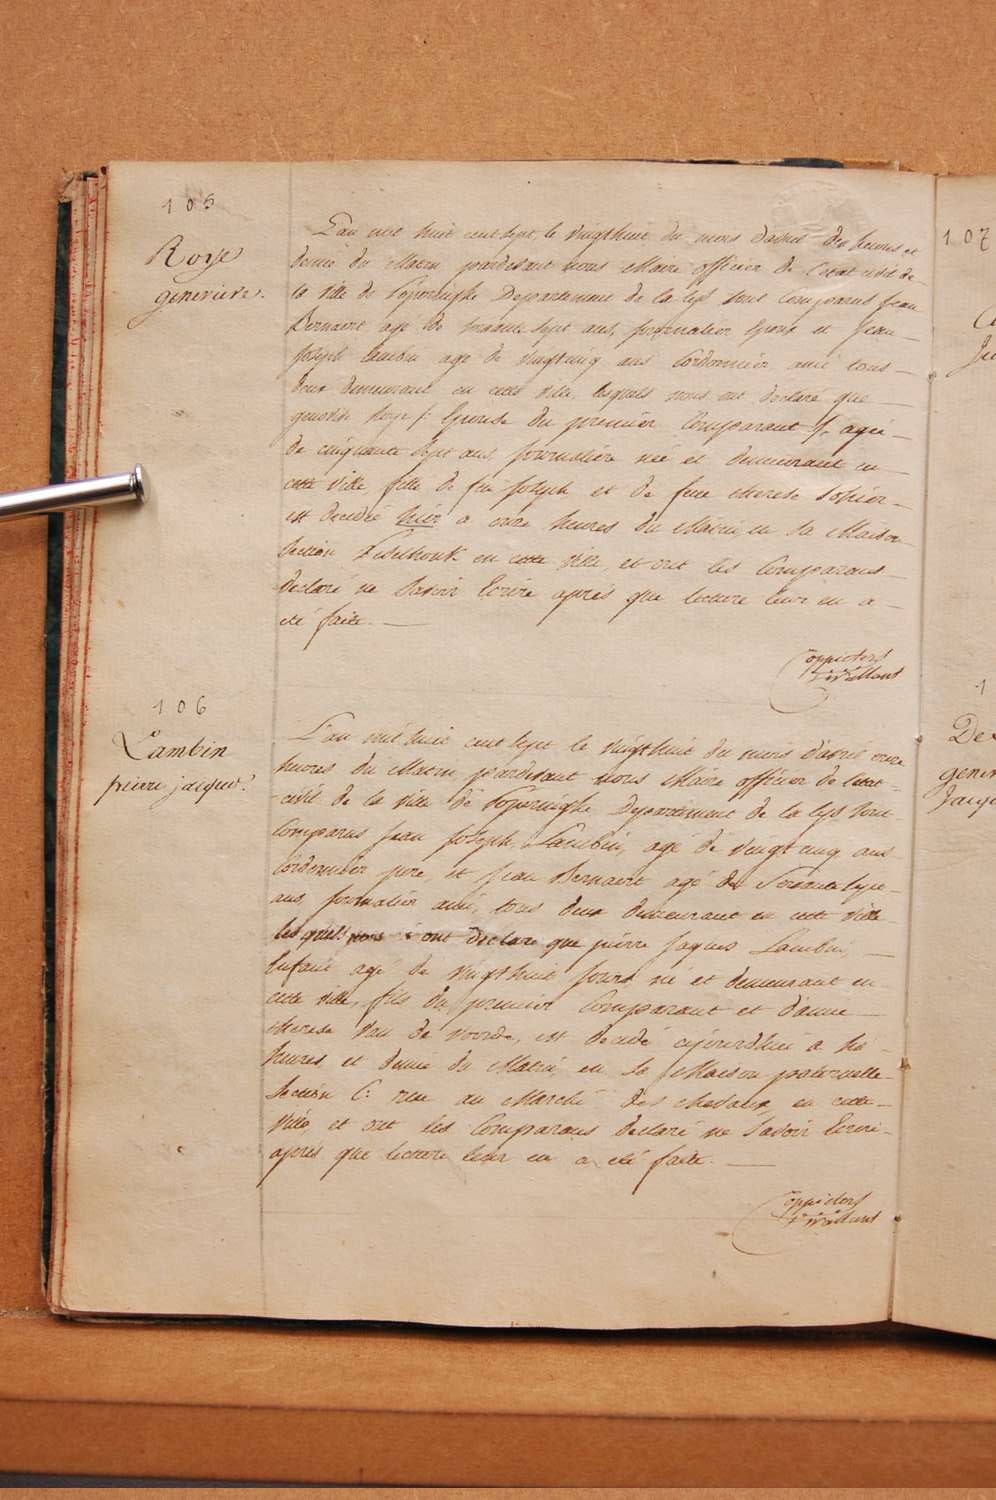 105
Roye
genevieve.
L'an mil huit cent sept, le vingthuit du mois d'avril dix heures et
demie du Matin pardevant nous Maire officier de l'etat civil de
la ville de Poperinghe Departement de la Lys sont Comparus Jean
Bernaert agé de soixante sept ans, journalier Epoux et Jean
Joseph Lambin agé de vingtcinq ans Cordonnier ami tous
deux demeurant en cette ville, lesquels nous ont declaré que
genevieve Roye /: Epouse du premier Comparant :/ agée
de cinquante sept ans journalière née et demeurant en
cette ville, fille de feu Joseph et de feue therese
est decedée hier a onze heures du Matin, en sa Maison
Section en cette ville, et ont les Comparans
declaré ne Savoir Ecrire après que lecture leur en a
été faite.
106
Lambin
pierre jacques.
L'an mil huit cent sept le vingthuit du mois d'avril onze
heures du Matin, pardevant nous Maire officier de l'etat
civil de la ville de Poperinghe Departement de la Lys sont
Comparus Jean Joseph Lambin, agé de vingtcinq ans
Cordonnier pere, et Jean Bernaert agé de Soixante sept
ans, journalier ami, tous deux demeurant en cette ville
lesquels nous ont declaré que pierre Jaques Lambin,
Enfant agé de vingthuit jours né et demeurant en
cette ville, fils du premier Comparant et d'anne
therese Van de Voorde, est decedé aujourdhui a six
heures et demie du Matin, en sa Maison paternelle
Section C: rue au Marché des en cette
ville et ont les Comparans declaré ne Savoir Ecrire
après que lecture leur en a été faite.
107